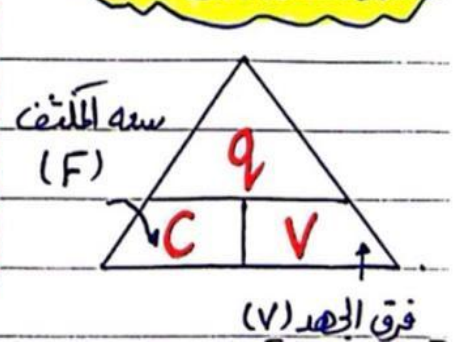 سعه المكثف
(F)
q
C
V
فرق الجهد (V)